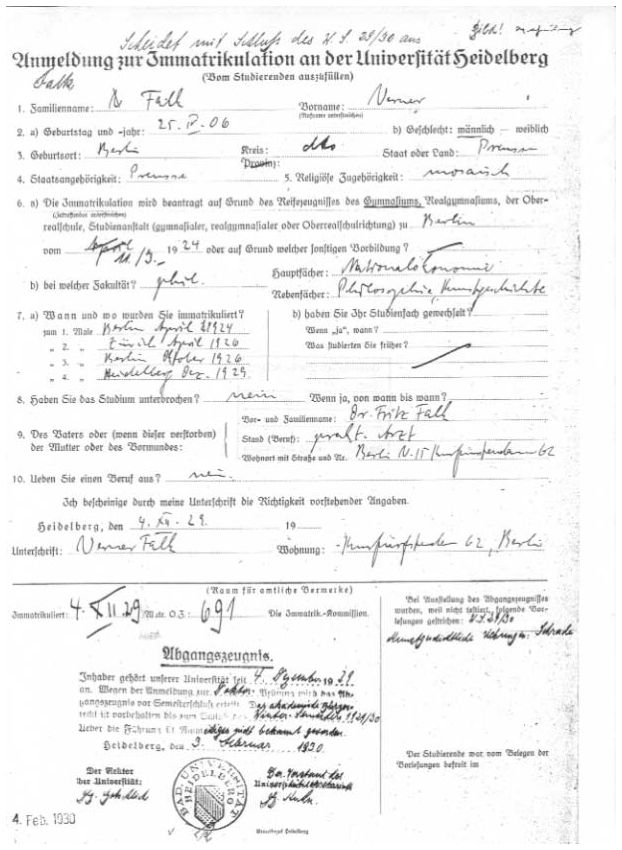 Scheidet mit Schluß des W. S. 29/30 aus
Anmeldung zur Immatrikulation an der Universität Heidelberg
Falk
(Vom Studierenden auszufüllen)
1. Familienname: Falk Vorname: Werner
(Rufname unterstreichen)
2. a) Geburtstag und -jahr: 25. IV. 06 b) Geschlecht: männlich – weiblich
3. Geburtsort: Berlin Kreis: dto Provinz: Staat oder Land: Preussen
4. Staatsangehörigkeit: Preusse 5. Religiöse Zugehörigkeit: mosaisch
6. a) Die Immatrikulation wird beantragt auf Grund des Reifezeugnisses des Gymnasiums, Realgymnasiums, der Ober-
(Zutreffendes unterstreichen)
realschule, Studienanstalt (gymnasialer, realgymnasialer oder Oberrealschulrichtung) zu Berlin
vom 11/3. 1924 oder auf Grund welcher sonstigen Vorbildung?
b) bei welcher Fakultät? phil. Hauptfächer: Nationalökonomie
Nebenfächer: Philosophie, Kunstgeschichte
7. a) Wann und wo wurden Sie immatrikuliert? b) haben Sie Ihr Studienfach gewechselt?
zum 1. Male Berlin April 1924 Wenn „ja", wann?
„ 2. „ Zürich April 1926 Was studierten Sie früher?
„ 3. „ Berlin Oktober 1926
„ 4. „ Heidelberg Dez. 1929
8. Haben Sie das Studium unterbrochen? nein Wenn ja, von wann bis wann?
9. Des Vaters oder (wenn dieser verstorben) der Mutter oder des Vormundes:
Vor- und Familienname: Dr. Fritz Falk
Stand (Beruf): prakt. Arzt
Wohnort mit Straße und Nr. Berlin W. 15 Kurfürstendamm 62
10. Ueben Sie einen Beruf aus? nein.
Ich bescheinige durch meine Unterschrift die Richtigkeit vorstehender Angaben.
Heidelberg, den 4. XII. 29. 19
Unterschrift: Werner Falk Wohnung: Kurfürstendamm 62, Berlin
(Raum für amtliche Vermerke)
Immatrikuliert: 4. XII 29 Matr. O.Z.: 691 Die Immatrik.-Kommission.
Bei Ausstellung des Abgangszeugnisses
wurden, weil nicht testiert, folgende Vor-
lesungen gestrichen: W.S. 29/30
Abgangszeugnis.
Inhaber gehört unserer Universität seit 4. Dezember 1929
an. Wegen der Anmeldung zur Doktor-Prüfung wird das Ab-
gangszeugnis vor Semesterschluß erteilt. Das akademische Bürger-
recht ist vorbehalten bis zum Schluß des Winter-Semesters 1929/30
Ueber die Führung ist Nachteiliges nicht bekannt geworden.
Heidelberg, den 3. Februar 1930.
Der Studierende war vom Belegen der
Vorlesungen befreit im
Der Rektor
der Universität:
Der Vorstand des
BAD. UNIVERSITÄT HEIDELBERG
4. Feb. 1930